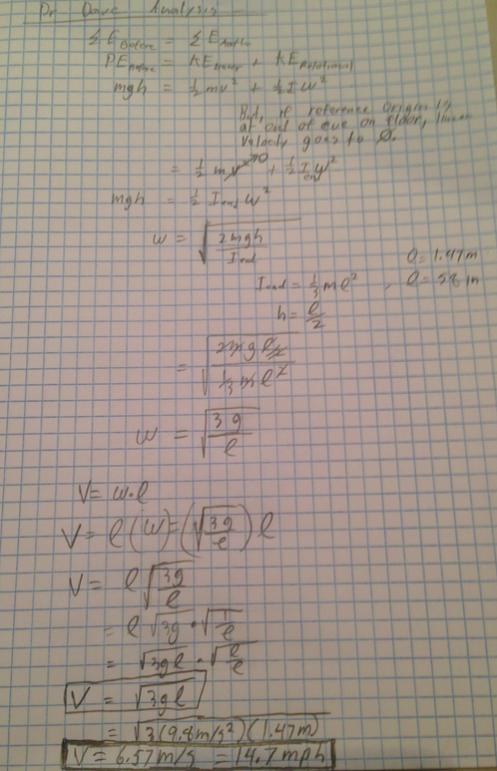 Dr Dave Analysis
Σ E_Before = Σ E_After
PE_Before = KE_linear + KE_Rotational
mgh = ½ mv² + ½ I ω²
But, if reference origin is
at end of cue on floor, linear
velocity goes to 0.
= ½ mv² →0 + ½ I_end ω²
mgh = ½ I_end ω²
ω = √(2mgh / I_end)
l = 1.47m
I_end = ⅓ m l² , l = 58 in
h = l/2
= √(2mg l/2 / ⅓ m l²)
ω = √(3g / l)
V = ω·l
V = l(ω) = (√(3g / l)) l
V = l √(3g / l)
= l √3g · √(1/l)
= √3gl · √(l/l)
V = √3gl
= √3(9.8m/s²)(1.47m)
V = 6.57 m/s = 14.7 mph